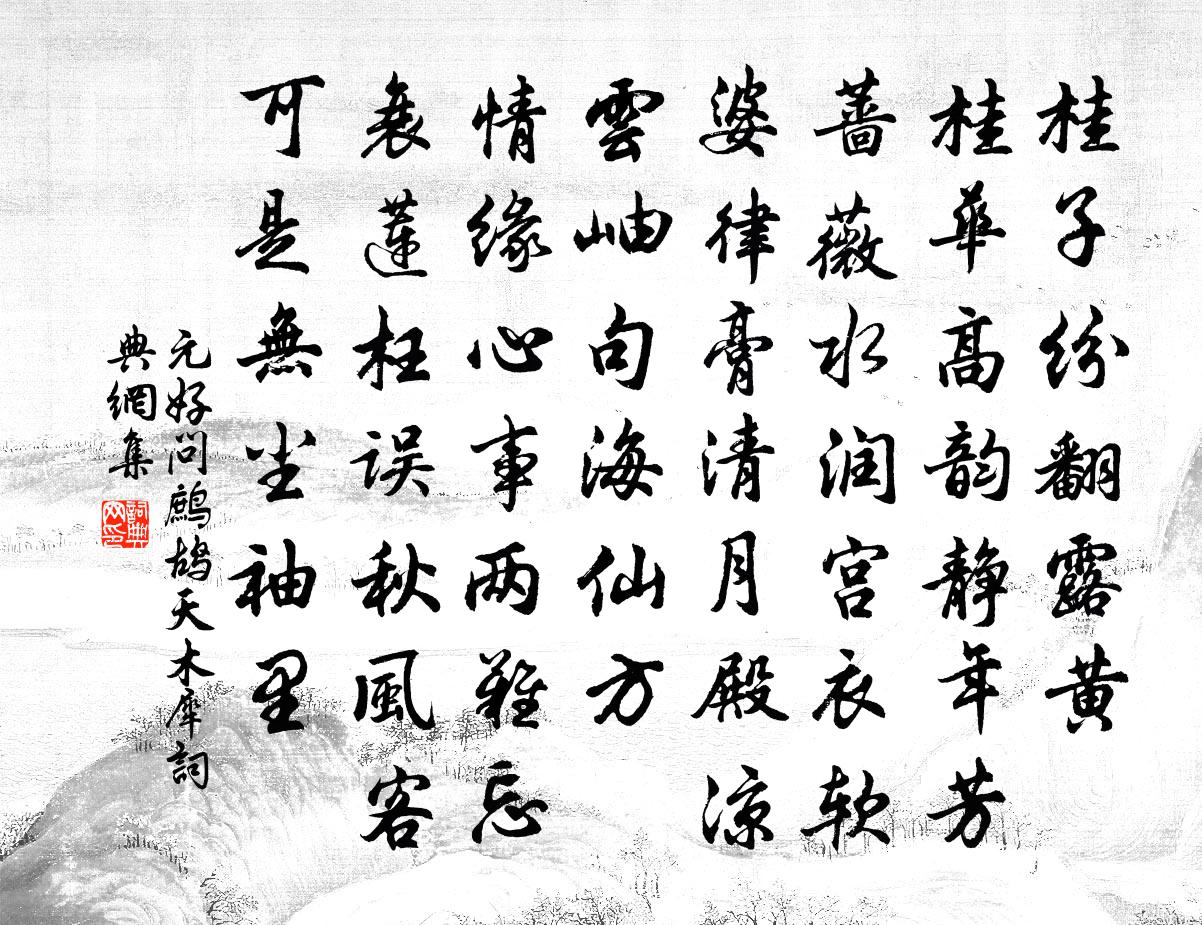 桂子纷翻露黄
桂華高韵静年芳
蔷薇水润宫衣软
婆律膏清月殿涼
雲岫句海仙方
情缘心事两難忘
衰蓮枉误秋風客
可是無尘袖里
元好问鷓鴣天木犀詞
典網集
詞典网印